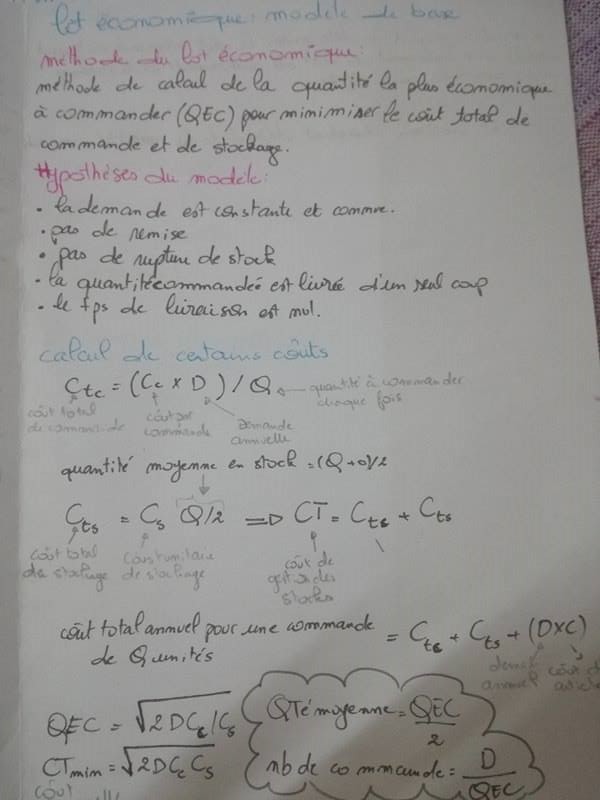 lot économique: modèle de base
méthode du lot économique:
méthode de calcul de la quantité la plus économique
à commander (QEC) pour minimiser le coût total de
commande et de stockage.
Hypothèses du modèle:
• la demande est constante et connue.
• pas de remise
• pas de rupture de stock
• la quantité commandée est livrée d'un seul coup
• le tps de livraison est nul.
calcul de certains coûts
Ctc = (Cc x D) / Q ← quantité à commander
chaque fois
coût total
de commande
coût par
commande
Demande
annuelle
quantité moyenne en stock = (Q+0)/2
Cts = Cs Q/2 => CT = Ctc + Cts
coût total
de stockage
coût unitaire
de stockage
coût de
gestion des
stocks
coût total annuel pour une commande
de Q unités
= Ctc + Cts + (DxC)
annuel
coût
QEC = √2DCc/Cs
CTmin = √2DCc Cs
coût
QTé moyenne = QEC/2
nb de commande = D/QEC